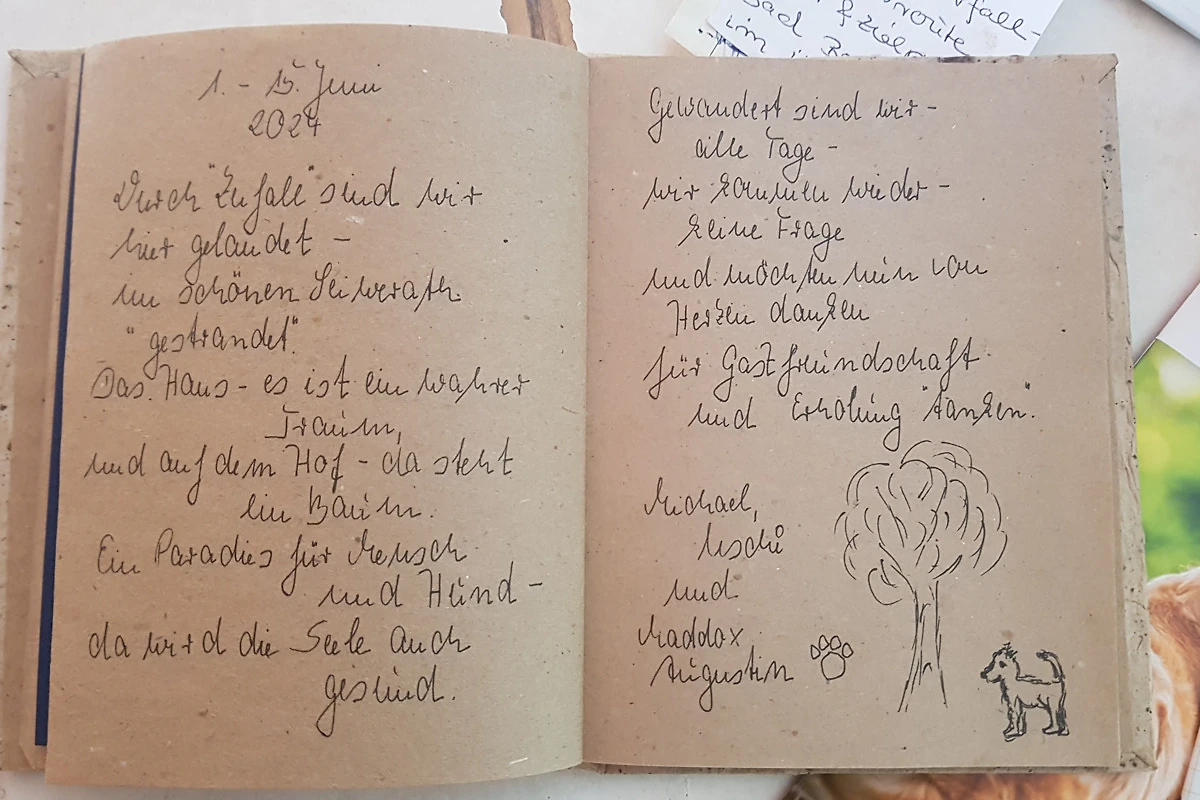 1. - 15. Juni
2024
Durch "Zufall" sind wir
hier gelandet -
im schönen Seiwerath
"gestrandet".
Das Haus - es ist ein wahrer
Traum,
und auf dem Hof - da steht
ein Baum.
Ein Paradies für Mensch
und Hund -
da wird die Seele auch
gesund.
Gewandert sind wir -
alle Tage -
wir kommen wieder -
keine Frage
und möchten nun von
Herzen danken
für Gastfreundschaft
und Erholung "tanken".
Michael,
Uschi
und
Maddox
Augustin
im